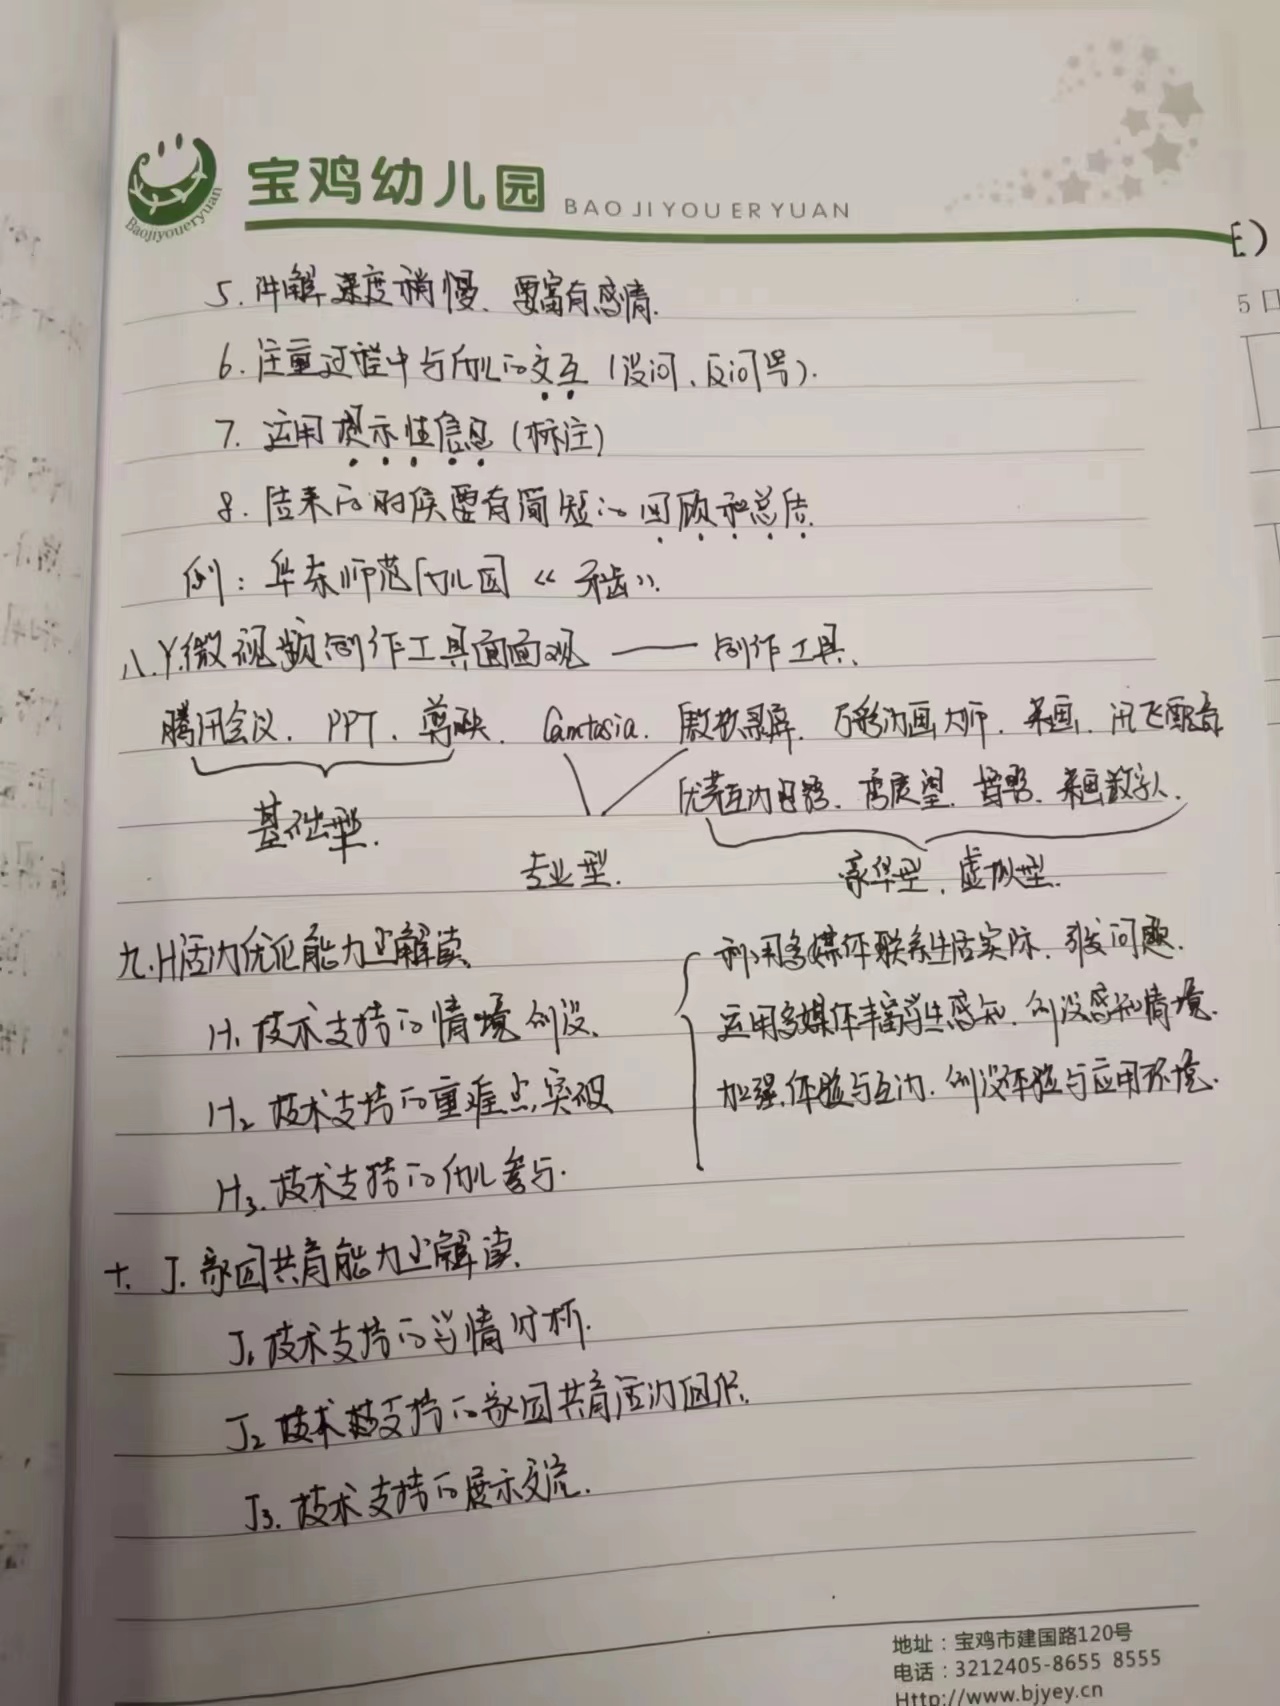 宝鸡幼儿园
BAO JI YOU ER YUAN
Baojiyoueryuan
5.讲解速度稍慢、要富有感情.
6.注重过程中与幼儿的交互(设问、反问等).
7.运用提示性信息(标注)
8.结束的时候要有简短的回顾和总结.
例:华东师范幼儿园《牙齿》.
八.Y.微视频创作工具面面观——创作工具.
腾讯会议、PPT、剪映、Camtasia、傲软录屏、万彩动画大师、来画、讯飞配音
优芽互动电影、 来画数字人.
基础型.
专业型.
豪华型、虚拟型.
九.H活动优化能力点解读.
H₁技术支持的情境创设.
H₂技术支持的重难点突破
H₃.技术支持的幼儿参与.
利用多媒体联系生活实际、引发问题.
运用多媒体丰富学生感知、创设感知情境.
加强体验与互动、创设体验与应用环境.
十.J.家园共育能力点解读.
J₁技术支持的学情分析.
J₂技术支持的家园共育活动组织.
J₃.技术支持的展示交流.
地址:宝鸡市建国路120号
电话:3212405-8655 8555
Http://www.bjyey.cn
E)
5口